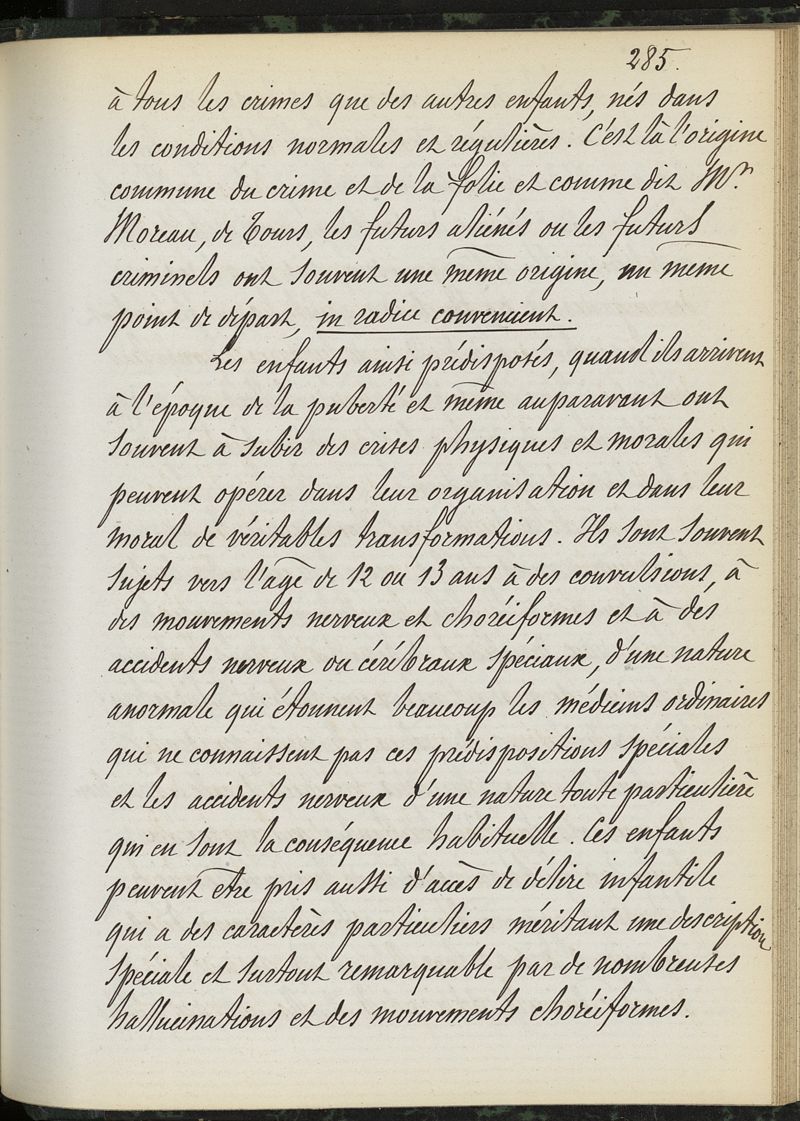 285.
à tous les crimes que des autres enfants, nés dans
les conditions normales et régulières. C'est là l'origine
commune du crime et de la folie et comme dit Mr.
Moreau, de Tours, les futurs aliénés ou les futurs
criminels ont souvent une même origine, un même
point de départ, in radice conveniunt.
Les enfants ainsi prédisposés, quand ils arrivent
à l'époque de la puberté et même auparavant ont
souvent à subir des crises physiques et morales qui
peuvent opérer dans leur organisation et dans leur
moral de véritables transformations. Ils sont souvent
sujets vers l'âge de 12 ou 13 ans à des convulsions, à
des mouvements nerveux et choréiformes et à des
accidents nerveux ou cérébraux spéciaux, d'une nature
anormale qui étonnent beaucoup les médecins ordinaires
qui ne connaissent pas ces prédispositions spéciales
et les accidents nerveux d'une nature toute particulière
qui en sont la conséquence habituelle. Ces enfants
peuvent être pris aussi d'accès de délire infantile
qui a des caractères particuliers méritant une description
spéciale et surtout remarquable par de nombreuses
hallucinations et des mouvements choréiformes.